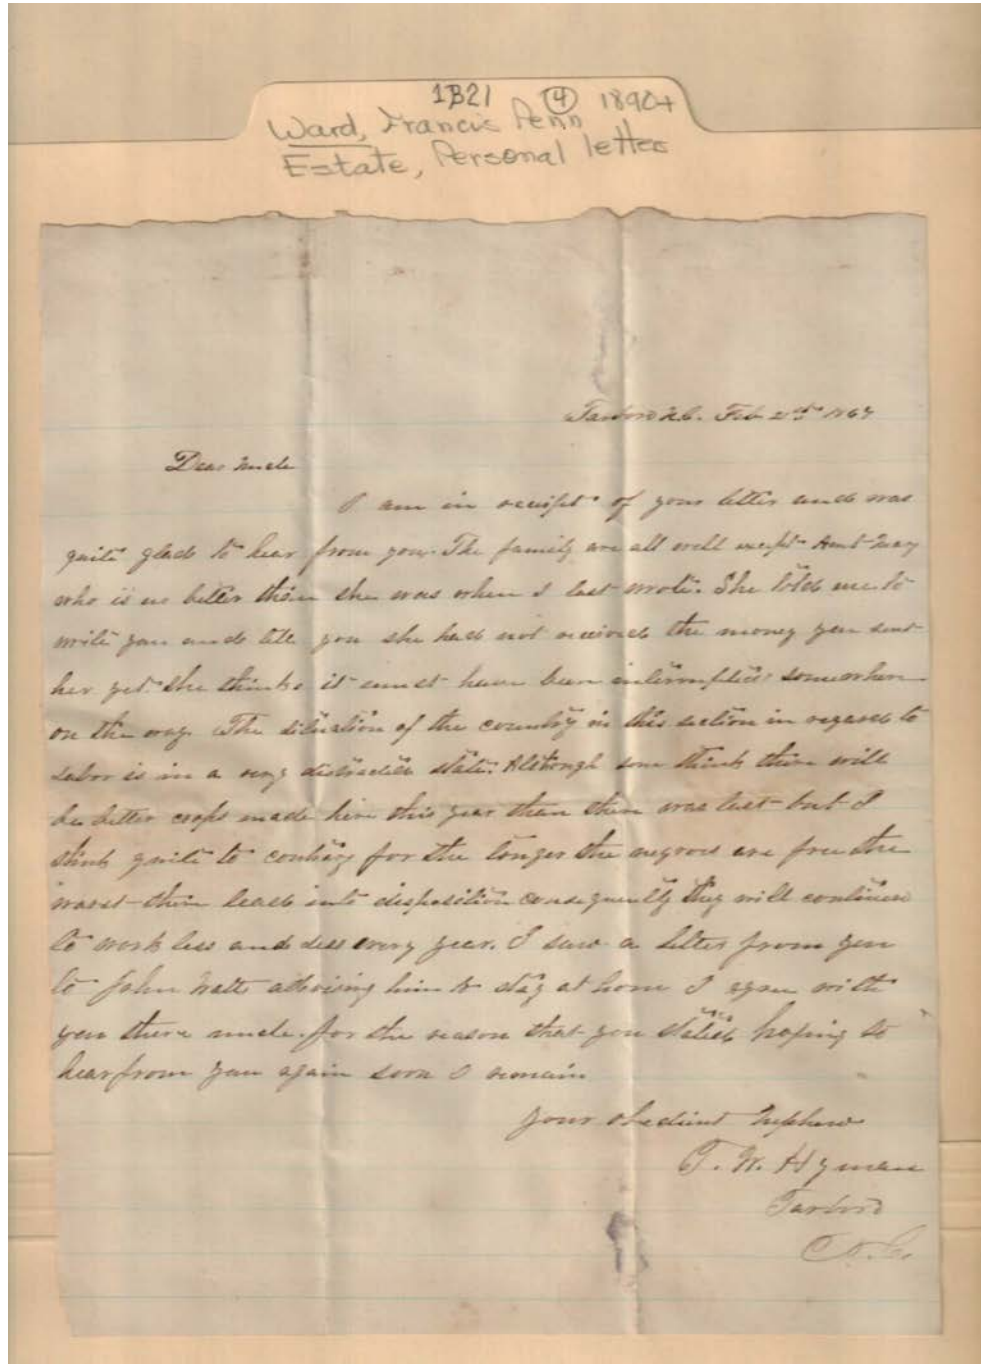 1B21 4 1890+
Ward, Francis Penn
Estate, Personal letter
Tarboro N.C. Feb 1867
Dear Uncle
I am in receipt of your letter and was
quite glad to hear from you. The family are all well except Aunt Mary
who is no better than she was when I last wrote. She told me to
write you and tell you she had not received the money you sent
her yet she thinks it must have been somewhere
on the way. The situation of the country in this section in regard to
Labor is in a very distracted state. Although some think there will
be better crops made here this year than there was last but I
think quite to contrary for the longer the negroes are free the
there disposition consequently they will continue
to work less and less every year. I saw a letter from you
to John Watts advising him to stay at home I agree with
you there uncle. for the reason that you stated hoping to
hear from you again soon I remain
your obedient Nephew
T. W. Hyman
Tarboro
N.C.